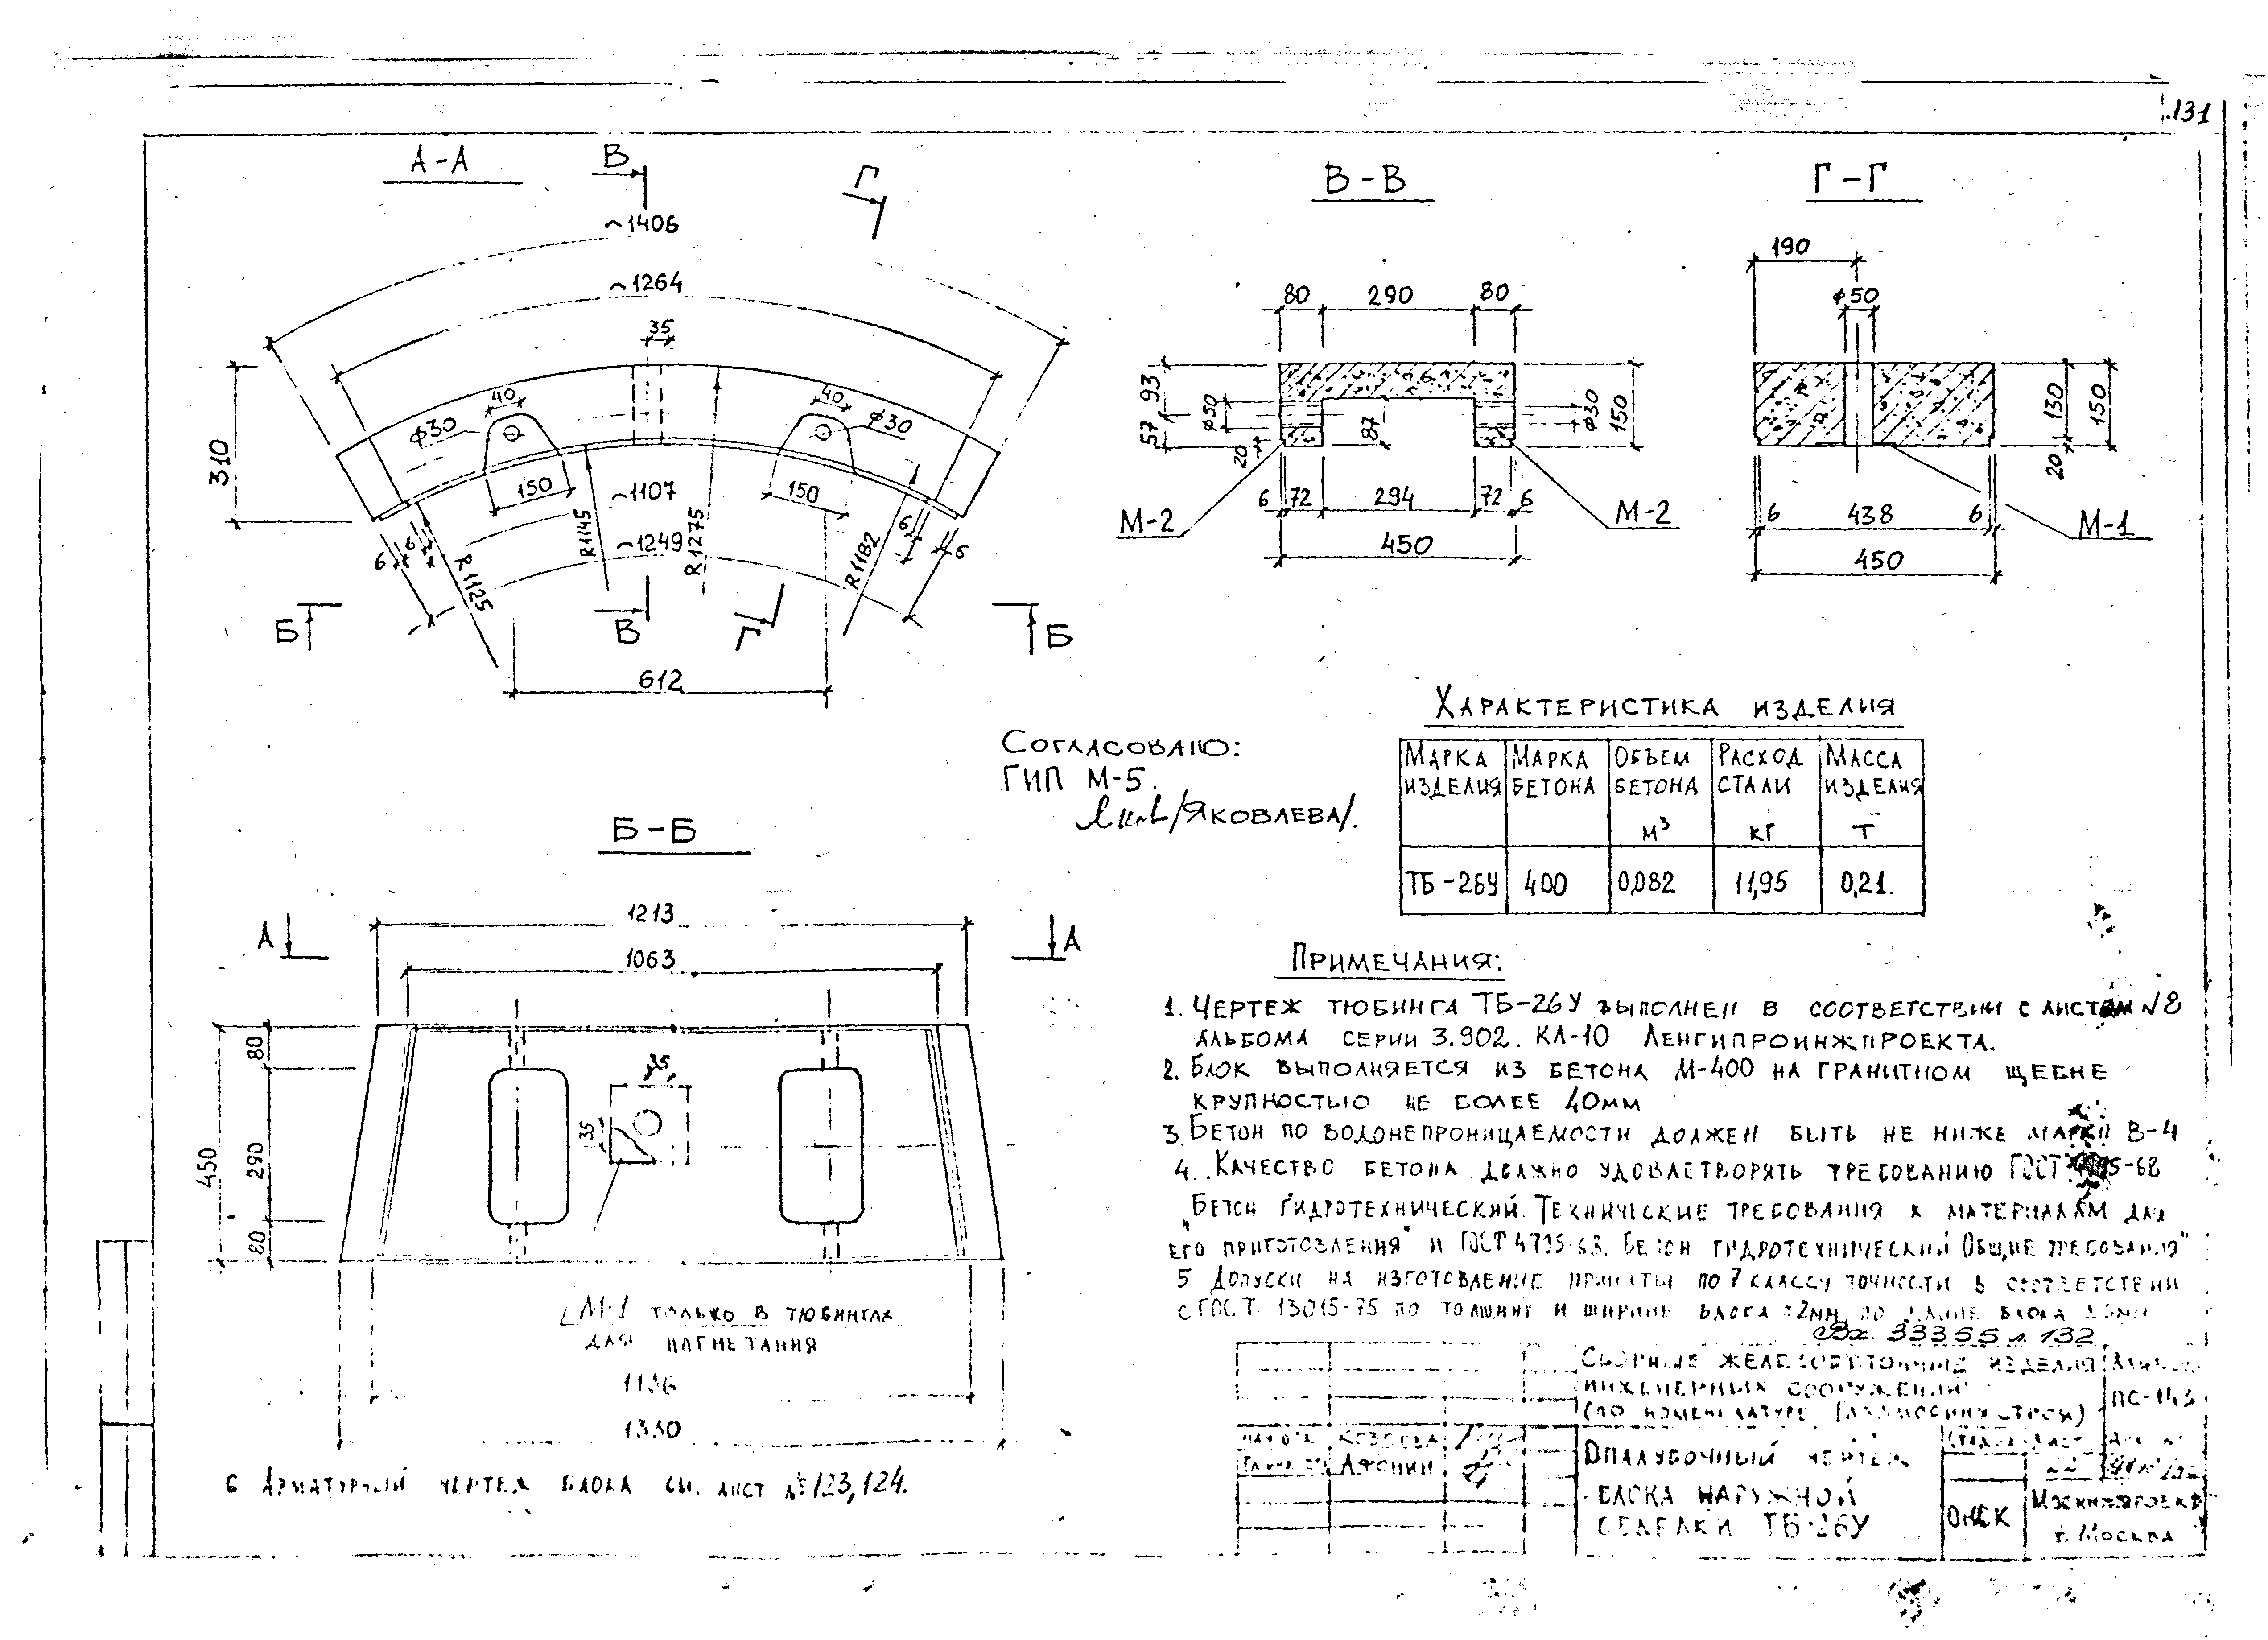 131
А-А
В
Г
~1406
~1264
35
40
40
Ф30
Ф30
310
150
150
~1107
~1249
R1145
R1275
R1125
R1182
6
6
6
6
Б
В
Г
Б
612
В-В
80
290
80
93
57
Ф50
20
87
Ф30
150
6
72
294
72
6
М-2
М-2
450
Г-Г
190
Ф50
130
150
20
6
438
6
М-1
450
СОГЛАСОВАНО:
ГИП М-5.
/ЯКОВЛЕВА/.
ХАРАКТЕРИСТИКА ИЗДЕЛИЯ
МАРКА ИЗДЕЛИЯ
МАРКА БЕТОНА
ОБЪЕМ БЕТОНА м³
РАСХОД СТАЛИ кг
МАССА ИЗДЕЛИЯ т
ТБ-26У 400 0,082 11,95 0,21.
Б-Б
А
1213
1063
А
80
450
290
80
35
35
М-1 ТОЛЬКО В ТЮБИНГАХ
ДЛЯ НАГНЕТАНИЯ
1330
ПРИМЕЧАНИЯ:
1. ЧЕРТЕЖ ТЮБИНГА ТБ-26У ВЫПОЛНЕН В СООТВЕТСТВИИ С ЛИСТОМ N8
АЛЬБОМА СЕРИИ 3.902. КЛ-10 ЛЕНГИПРОИНЖПРОЕКТА.
2. БЛОК ВЫПОЛНЯЕТСЯ ИЗ БЕТОНА М-400 НА ГРАНИТНОМ ЩЕБНЕ
КРУПНОСТЬЮ НЕ БОЛЕЕ 40ММ
3. БЕТОН ПО ВОДОНЕПРОНИЦАЕМОСТИ ДОЛЖЕН БЫТЬ НЕ НИЖЕ МАРКИ В-4
4. КАЧЕСТВО БЕТОНА ДОЛЖНО УДОВЛЕТВОРЯТЬ ТРЕБОВАНИЮ ГОСТ
„БЕТОН ГИДРОТЕХНИЧЕСКИЙ. ТЕХНИЧЕСКИЕ ТРЕБОВАНИЯ К МАТЕРИАЛАМ ДЛЯ
ЕГО ПРИГОТОВЛЕНИЯ" И ГОСТ БЕТОН ГИДРОТЕХНИЧЕСКИЙ ОБЩИЕ ТРЕБОВАНИЯ"
5 ДОПУСКИ НА ИЗГОТОВЛЕНИЕ ПРИНЯТЫ ПО 7 КЛАССУ ТОЧНОСТИ В СООТВЕТСТВИИ
С ГОСТ 13015-75 ПО ТОЛЩИНЕ И ШИРИНЕ БЛОКА ±2ММ, ПО ДЛИНЕ БЛОКА
Вх. 33355 л. 132
6 АРМАТУРНЫЙ ЧЕРТЕЖ БЛОКА СМ. ЛИСТ № 123, 124.
СБОРНЫЕ ЖЕЛЕЗОБЕТОННЫЕ ИЗДЕЛИЯ
ИНЖЕНЕРНЫХ СООРУЖЕНИЙ
(ПО НОМЕНКЛАТУРЕ
ПС-143
АФОНИН
ОПАЛУБОЧНЫЙ ЧЕРТЕЖ
БЛОКА НАРУЖНОЙ
ОТДЕЛКИ ТБ-26У
МОСИНЖПРОЕКТ
г. МОСКВА